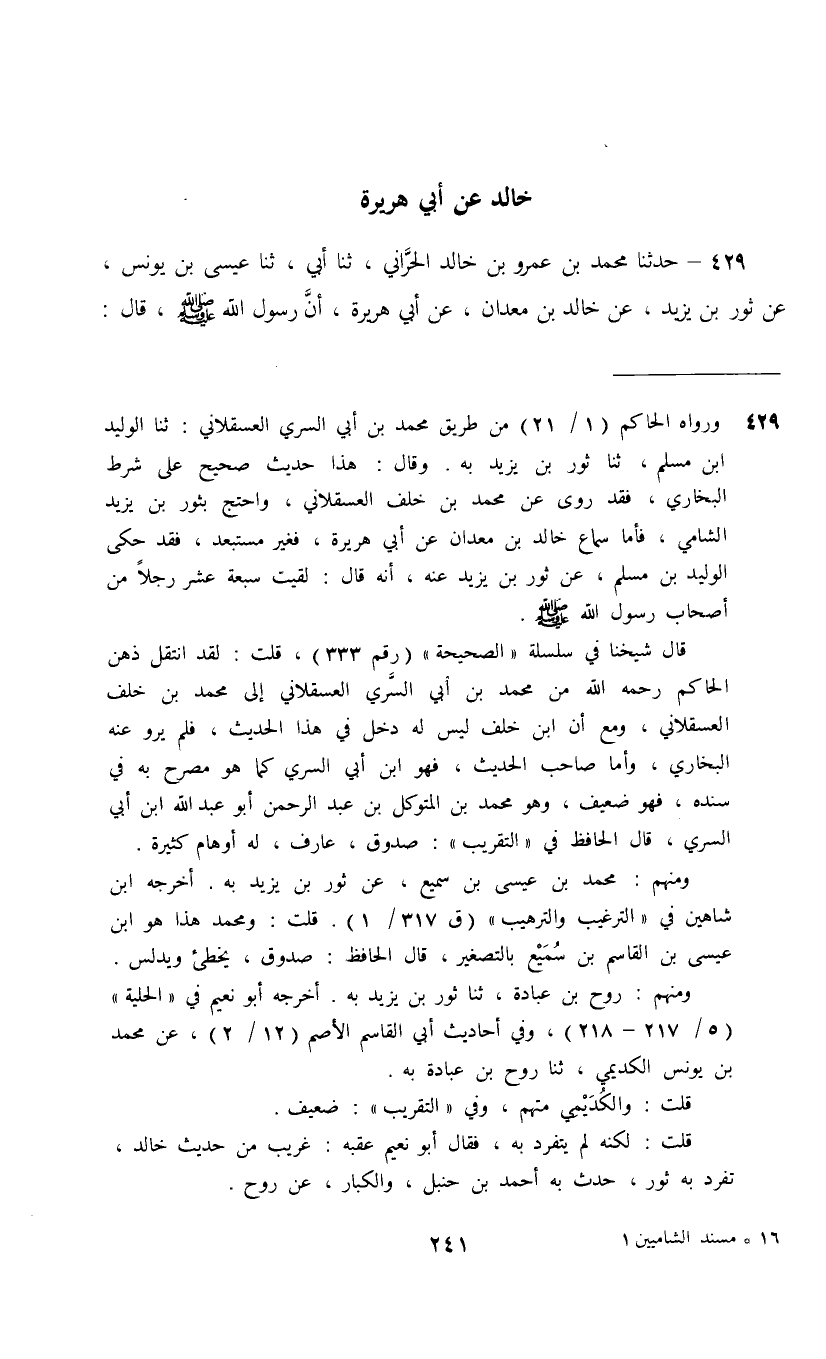 خالد عن أبي هريرة
٤٢٩ – حدثنا محمد بن عمرو بن خالد الحرَّاني ، ثنا أبي ، ثنا عيسى بن يونس ،
عن ثور بن يزيد ، عن خالد بن معدان ، عن أبي هريرة ، أنَّ رسول الله ﷺ ، قال :
٤٢٩ ورواه الحاكم ( ١ / ٢١ ) من طريق محمد بن أبي السري العسقلاني : ثنا الوليد
ابن مسلم ، ثنا ثور بن يزيد به . وقال : هذا حديث صحيح على شرط
البخاري ، فقد روى عن محمد بن خلف العسقلاني ، واحتج بثور بن يزيد
الشامي ، فأما سماع خالد بن معدان عن أبي هريرة ، فغير مستبعد ، فقد حكى
الوليد بن مسلم ، عن ثور بن يزيد عنه ، أنه قال : لقيت سبعة عشر رجلاً من
أصحاب رسول الله ﷺ .
قال شيخنا في سلسلة « الصحيحة » ( رقم ٣٣٣ ) ، قلت : لقد انتقل ذهن
الحاكم رحمه الله من محمد بن أبي السَّري العسقلاني إلى محمد بن خلف
العسقلاني ، ومع أن ابن خلف ليس له دخل في هذا الحديث ، فلم يرو عنه
البخاري ، وأما صاحب الحديث ، فهو ابن أبي السري كما هو مصرح به في
سنده ، فهو ضعيف ، وهو محمد بن المتوكل بن عبد الرحمن أبو عبد الله ابن أبي
السري ، قال الحافظ في « التقريب » : صدوق ، عارف ، له أوهام كثيرة .
ومنهم : محمد بن عيسى بن سميع ، عن ثور بن يزيد به . أخرجه ابن
شاهين في « الترغيب والترهيب » ( ق ٣١٧ / ١ ) . قلت : ومحمد هذا هو ابن
عيسى بن القاسم بن سُمَيْع بالتصغير ، قال الحافظ : صدوق ، يخطئ ويدلس .
ومنهم : روح بن عبادة ، ثنا ثور بن يزيد به . أخرجه أبو نعيم في « الحلية »
( ٥ / ٢١٧ – ٢١٨ ) ، وفي أحاديث أبي القاسم الأصم ( ١٢ / ٢ ) ، عن محمد
بن يونس الكديمي ، ثنا روح بن عبادة به .
قلت : والكُدَيْمي متهم ، وفي « التقريب » : ضعيف .
قلت : لكنه لم يتفرد به ، فقال أبو نعيم عقبه : غريب من حديث خالد ،
تفرد به ثور ، حدث به أحمد بن حنبل ، والكبار ، عن روح .
١٦ ٥ مسند الشاميين ١
٢٤١